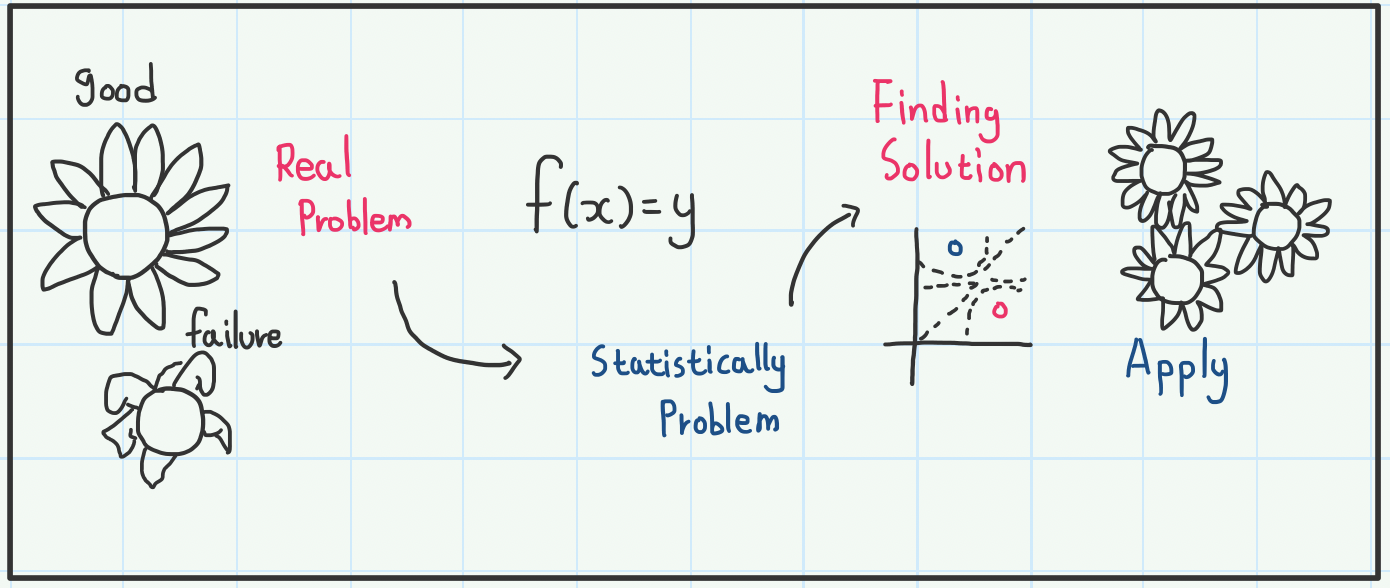 good
failure
Real
Problem
f(x)=y
Statistically
Problem
Finding
Solution
Apply